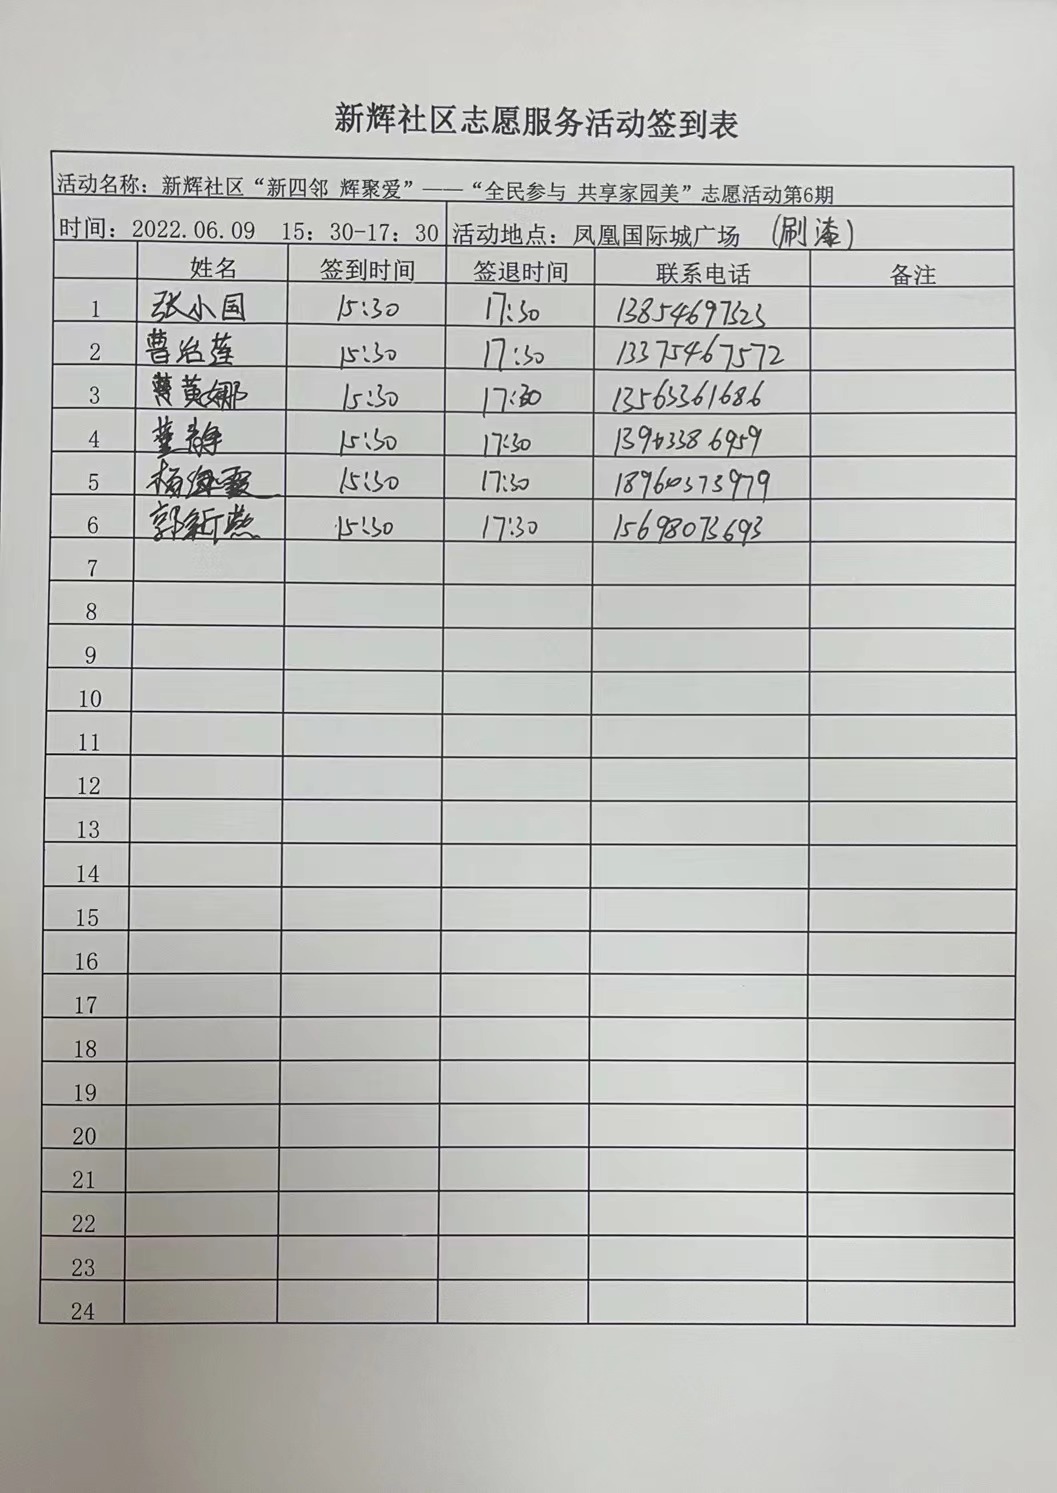 新辉社区志愿服务活动签到表
活动名称：新辉社区“新四邻 辉聚爱”——“全民参与 共享家园美”志愿活动第6期
时间：2022.06.09 15：30-17：30 活动地点：凤凰国际城广场 (刷漆)
姓名 签到时间 签退时间 联系电话 备注
1 张小国 15:30 17:30 13854697323
2 曹治莲 15:30 17:30 13375467572
3 黄娜 15:30 17:30 13563361686
4 董静 15:30 17:30
5 杨 15:30 17:30
6 郭新燕 15:30 17:30 15698073693
7
8
9
10
11
12
13
14
15
16
17
18
19
20
21
22
23
24